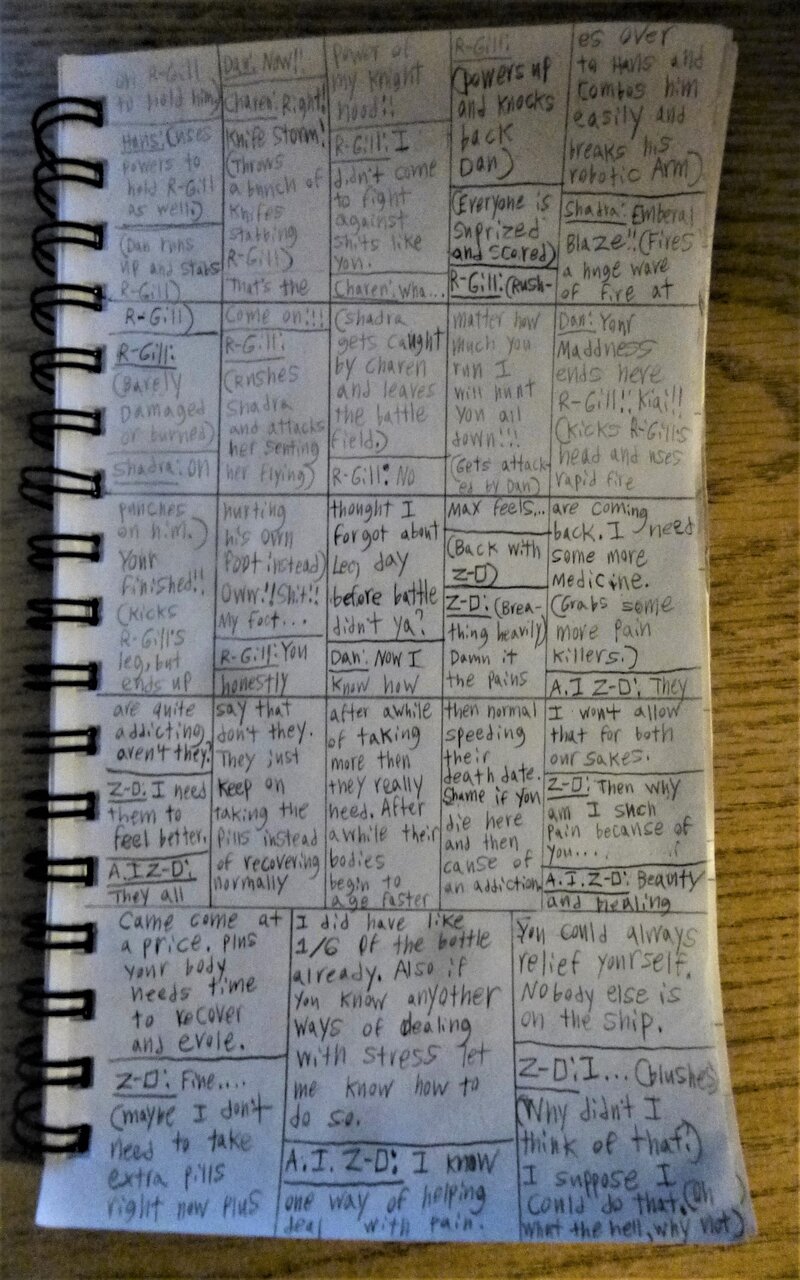 on R-Gill
to hold him)
Hans: (uses
powers to
hold R-Gill
as well.)
(Dan runs
up and stabs
R-Gill)
Dan: Now!!
Charen: Right!
Knife Storm!
(Throws
a bunch of
Knifes
stabbing
R-Gill)
That's the
power of
my Knight
hood!!
R-Gill: I
didn't come
to fight
against
shits like
you.
Charen: Wha...
R-Gill:
(powers up
and knocks
back
Dan)
(Everyone is
suprized
and scared)
R-Gill: (Rush-
es over
to Hans and
Combos him
easily and
breaks his
robotic Arm)
Shadra: Emberal
Blaze!! (Fires
a huge wave
of fire at
R-Gill)
R-Gill:
(Barely
Damaged
or burned)
Shadra: Oh
Come on!!!
R-Gill:
(rushes
Shadra
and attacks
her senting
her flying)
(Shadra
gets caught
by Charen
and leaves
the battle
field.)
R-Gill: No
matter how
much you
run I
will hunt
you all
down!!!
(Gets attack-
ed by Dan)
Dan: Your
Maddness
ends here
R-Gill!! Kiai!!
(Kicks R-Gill's
head and uses
rapid fire
punches
on him.)
Your
finished!!
(Kicks
R-Gill's
leg, but
ends up
hurting
his own
foot instead)
Oww!! Shit!!
My foot...
R-Gill: You
honestly
thought I
forgot about
Leg day
before battle
didn't ya?
Dan: Now I
Know how
Max feels...
(Back with
Z-D)
Z-D: (Brea-
thing heavily)
Damn it
the pains
are coming
back. I need
some more
Medicine.
(Grabs some
more pain
killers.)
A.I Z-D: They
are quite
addicting
aren't they?
Z-D: I need
them to
feel better.
A.I Z-D:
They all
say that
don't they.
They just
Keep on
taking the
pills instead
of recovering
normally
after awhile
of taking
more then
they really
need. After
awhile their
bodies
begin to
age faster
then normal
speeding
their
death date.
Shame if you
die here
and then
cause of
an addiction
I won't allow
that for both
our sakes.
Z-D: Then why
am I such
pain because of
you....
A.I. Z-D: Beauty
and healing
Came come at
a price. plus
your body
needs time
to recover
and evole.
Z-D: Fine....
(maybe I don't
need to take
extra pills
right now plus
I did have like
1/6 of the bottle
already. Also if
you know anyother
ways of dealing
with stress let
me know how to
do so.
A.I. Z-D: I know
one way of helping
deal with pain.
You could always
relief yourself.
Nobody else is
on the ship.
Z-D: I... (blushes)
(Why didn't I
think of that.)
I suppose I
Could do that. (Oh
what the hell, why not)